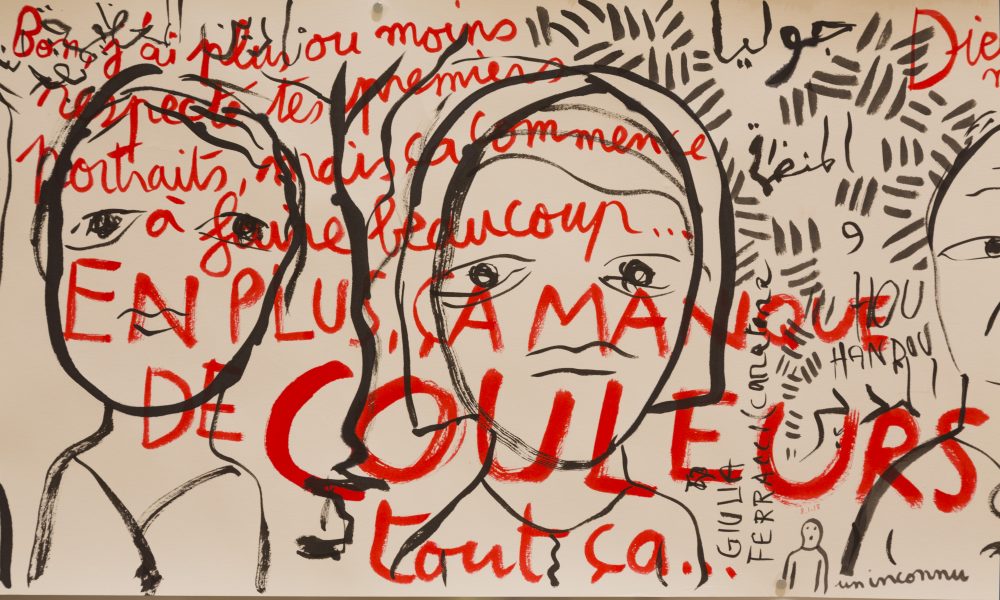 Bon, j'ai plus ou moins
respecté tes premiers
portraits, mais ça commence
à faire beaucoup...
EN PLUS, ÇA MANQUE
DE COULEURS
tout ça...
Die
جوليا
9
HOU
HANDOU
GIULIA
8.1.18
un inconnu